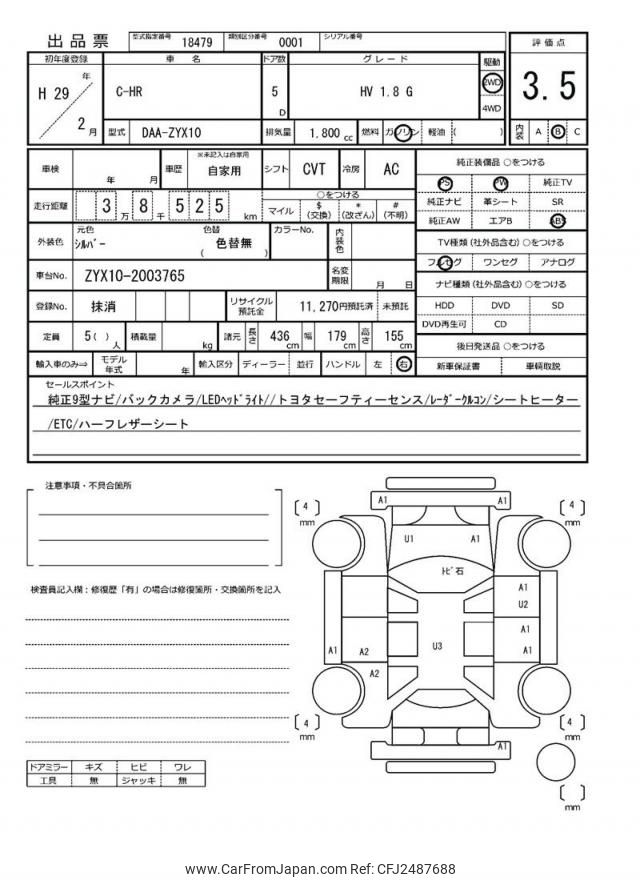 出品票 型式指定番号 18479 類別区分番号 0001 シリアル番号
初年度登録 車名 ドア数 グレード 駆動 評価点
H 29 年 2 月 C-HR 5 D HV 1.8 G 2WD 4WD 3.5
型式 DAA-ZYX10 排気量 1,800 cc 燃料 ガソリン 軽油 ( ) 内装 A B C
車検 年 月 車歴 ※未記入は自家用 自家用 シフト CVT 冷房 AC
走行距離 3 万 8 千 525 km ○をつける
マイル $ (交換) * (改ざん) # (不明)
外装色 元色 シルバー 色替 色替無 ( ) カラーNo. 内装色
車台No. ZYX10-2003765 名変期限 月 日
登録No. 抹消 リサイクル預託金 11,270円預託済 未預託
定員 5( ) 人 積載量 kg 諸元 長さ 436 cm 幅 179 cm 高さ 155 cm
輸入車のみ⇒ モデル年式 年 輸入区分 ディーラー 並行 ハンドル 左 右
純正装備品 ○をつける
PS PW 純正TV
純正ナビ 革シート SR
純正AW エアB ABS
TV種類 (社外品含む) ○をつける
フルセグ ワンセグ アナログ
ナビ種類 (社外品含む) ○をつける
HDD DVD SD
DVD再生可 CD
後日発送品 ○をつける
新車保証書 車輌取説
セールスポイント
純正9型ナビ/バックカメラ/LEDヘッドライト//トヨタセーフティーセンス/レーダークルコン/シートヒーター
/ETC/ハーフレザーシート
注意事項・不具合箇所
検査員記入欄：修復歴「有」の場合は修復箇所・交換箇所を記入
ドアミラー キズ ヒビ ワレ
工具 無 ジャッキ 無
[ 4 ] mm A1 A1 [ 4 ] mm
U1 A1
トビ石
A1
U2
A1
U3
A1 A2 A1
A2
[ 4 ] mm [ 4 ] mm
A1
[ ] mm
www.CarFromJapan.com Ref: CFJ2487688